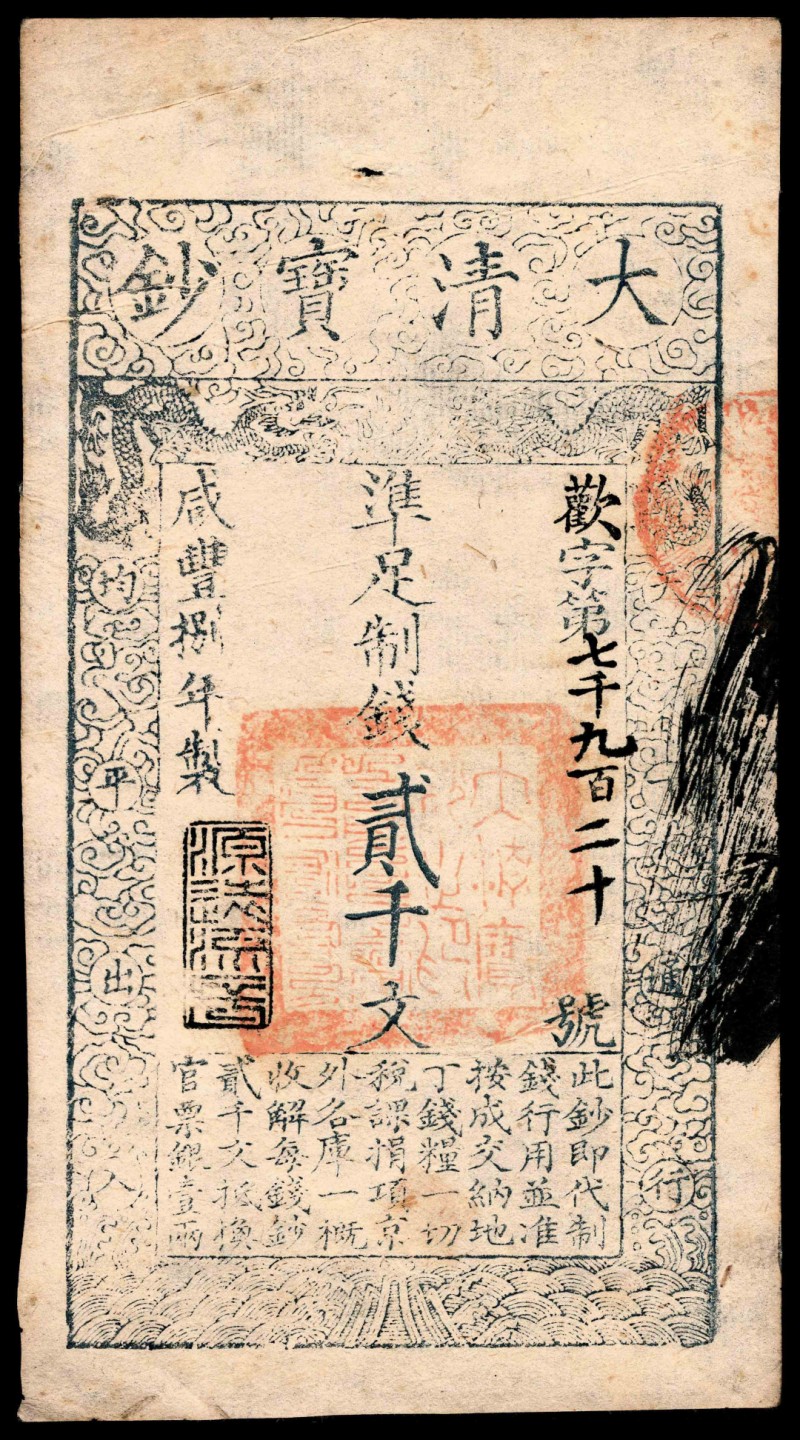 大清寶鈔
天
通行
均平出入
歡字第七千九百二十號
準足制錢貳千文
咸豐捌年製
源遠流長
此鈔即代制
錢行用並准
按成交納地
丁錢糧一切
稅課捐項京
外各庫一概
收解每錢鈔
貳千文抵換
官票銀壹兩